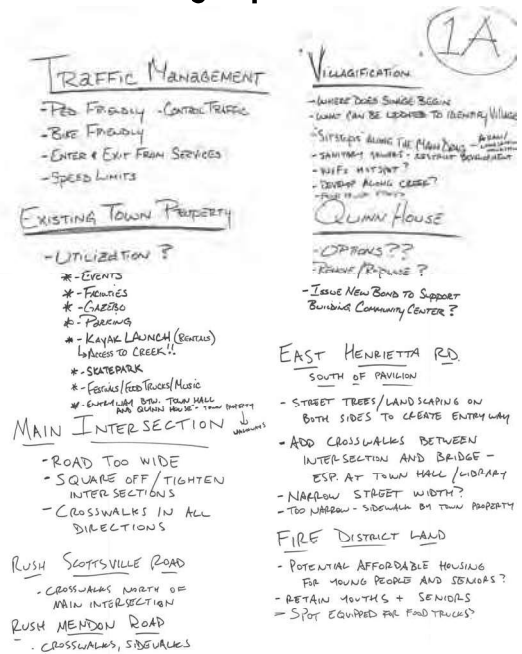 1A
TRAFFIC MANAGEMENT
- PED FRIENDLY - CONTROL TRAFFIC
- BIKE FRIENDLY
- ENTER & EXIT FROM SERVICES
- SPEED LIMITS
EXISTING TOWN PROPERTY
- UTILIZATION ?
* - EVENTS
* - FACILITIES
* - GAZEBO
* - PARKING
* - KAYAK LAUNCH (RENTALS)
↳ ACCESS TO CREEK!!
* - SKATEPARK
* - FESTIVALS/FOOD TRUCKS/MUSIC
* - ENTRYWAY BTW. TOWN HALL
AND QUINN HOUSE - TOWN PROPERTY
WALKWAYS
MAIN INTERSECTION
- ROAD TOO WIDE
- SQUARE OFF/TIGHTEN
INTERSECTIONS
- CROSSWALKS IN ALL
DIRECTIONS
RUSH SCOTTSVILLE ROAD
- CROSSWALKS NORTH OF
MAIN INTERSECTION
RUSH MENDON ROAD
- CROSSWALKS, SIDEWALKS
VILLAGIFICATION
- WHERE DOES SINAGE BEGIN
- WHAT CAN BE UPDATED TO IDENTIFY VILLAGE
- "SITSTEPS" ALONG THE MAIN DRAG -
- SANITARY SEWERS - RESTRICT DEVELOPMENT
- WIFI HOTSPOT?
- DEVELOP ALONG CREEK?
QUINN HOUSE
- OPTIONS??
- REMOVE/REPURPOSE ?
- ISSUE NEW BOND TO SUPPORT
BUILDING COMMUNITY CENTER ?
EAST HENRIETTA RD.
SOUTH OF PAVILION
- STREET TREES/LANDSCAPING ON
BOTH SIDES TO CREATE ENTRYWAY
- ADD CROSSWALKS BETWEEN
INTERSECTION AND BRIDGE -
ESP. AT TOWN HALL/LIBRARY
- NARROW STREET WIDTH?
- TOO NARROW - SIDEWALK BY TOWN PROPERTY
FIRE DISTRICT LAND
- POTENTIAL AFFORDABLE HOUSING
FOR YOUNG PEOPLE AND SENIORS?
- RETAIN YOUTHS + SENIORS
- SPOT EQUIPPED FOR FOOD TRUCKS?